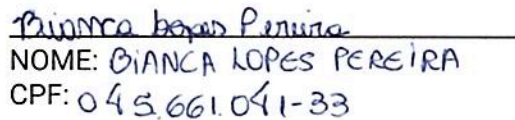 Bianca Lopes Pereira
NOME: BIANCA LOPES PEREIRA
CPF: 045.661.041-33